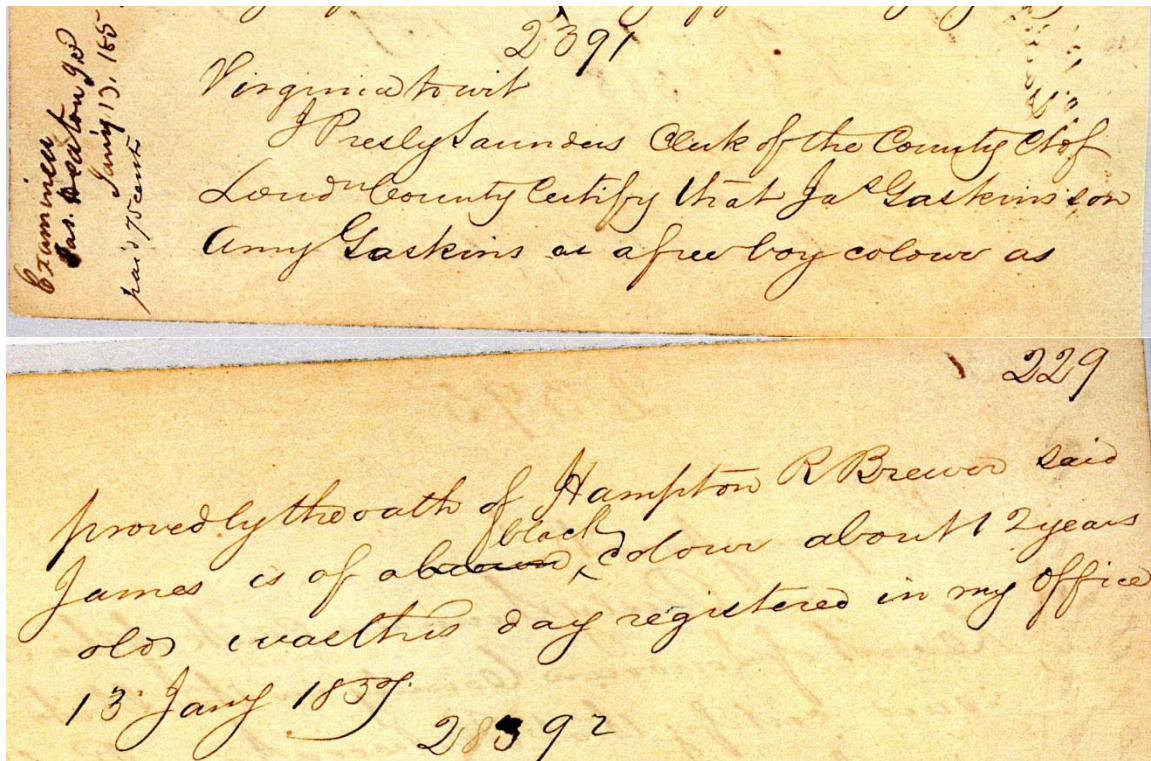 2391
Examined
Jany 13, 185
paid 75 cents
Virginia to wit
I Presly Saunders Clerk of the County Ct of
Loudn County Certify that Jas Gaskins son
Amy Gaskins is a free boy colour as
229
proved by the oath of Hampton R Brewer said
James is of a brown black colour about 12 years
old was this day registered in my office
13 Jany 1857.
28392